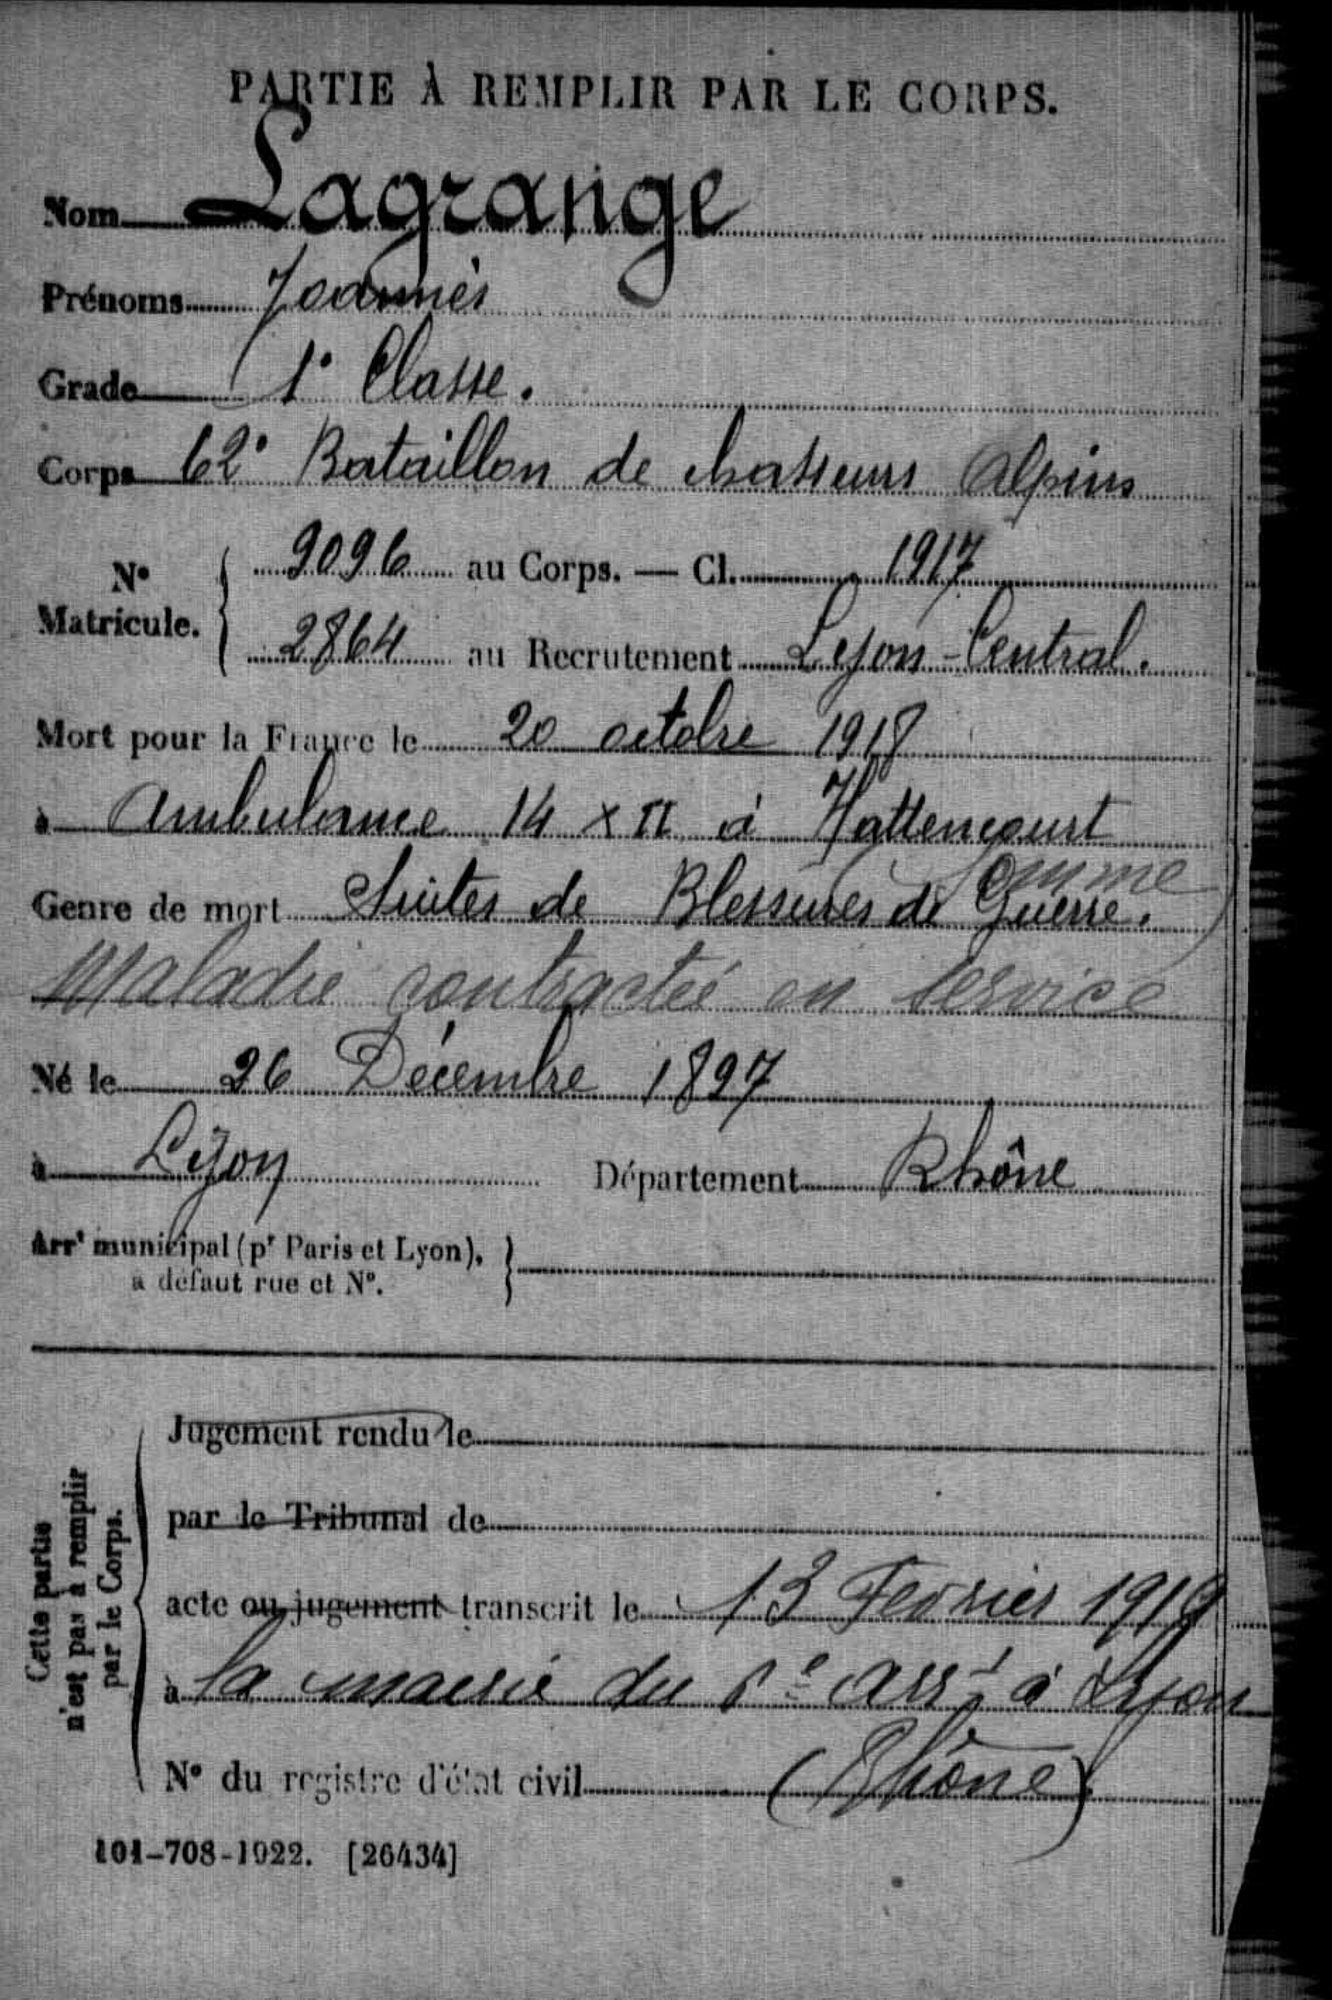 PARTIE À REMPLIR PAR LE CORPS.
Nom Lagrange
Prénoms Joannès
Grade 1e Classe.
Corps 62e Bataillon de chasseurs Alpins
N° Matricule. 9096 au Corps. — Cl. 1917
2864 au Recrutement Lyon-Central.
Mort pour la France le 20 octobre 1918
à Ambulance 14 x II à Hattencourt
Somme
Genre de mort Suites de Blessures de Guerre.
Maladie contractée en service
Né le 26 Décembre 1897
à Lyon Département Rhône
Arrt municipal (pr Paris et Lyon),
à défaut rue et N°.
Cette partie
n'est pas à remplir
par le Corps.
Jugement rendu le
par le Tribunal de
acte ou jugement transcrit le 13 Février 1919
à la mairie du arrt à Lyon
N° du registre d'état civil (Rhône)
101-708-1922. [26434]